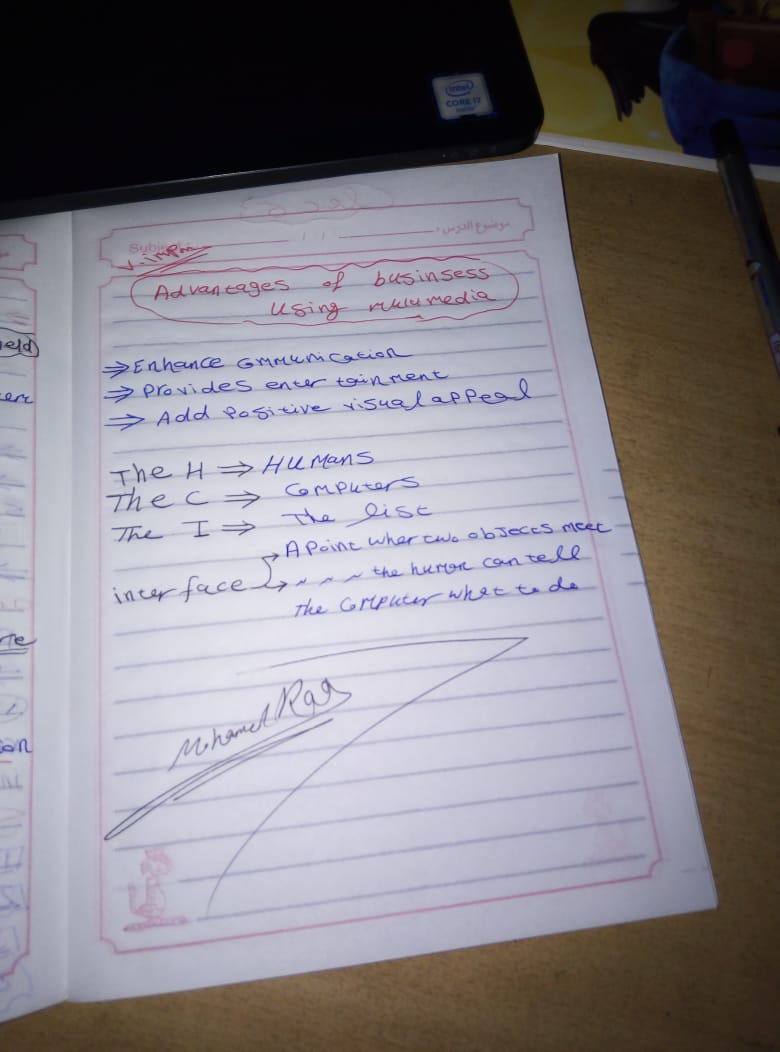 intel
CORE i7
inside
موضوع الدرس:
Subject
v. impn
Advantages of businsess
using mulumedia
⇒ Enhance communication
⇒ Provides entertainment
⇒ Add Positive visual appeal
The H ⇒ Humans
The C ⇒ Computers
The I ⇒ The list
→ A Point wher two objects meet
interface → ~ ~ ~ the human can tell
The computer what to do
Mohamed
eld
ere
te
ion